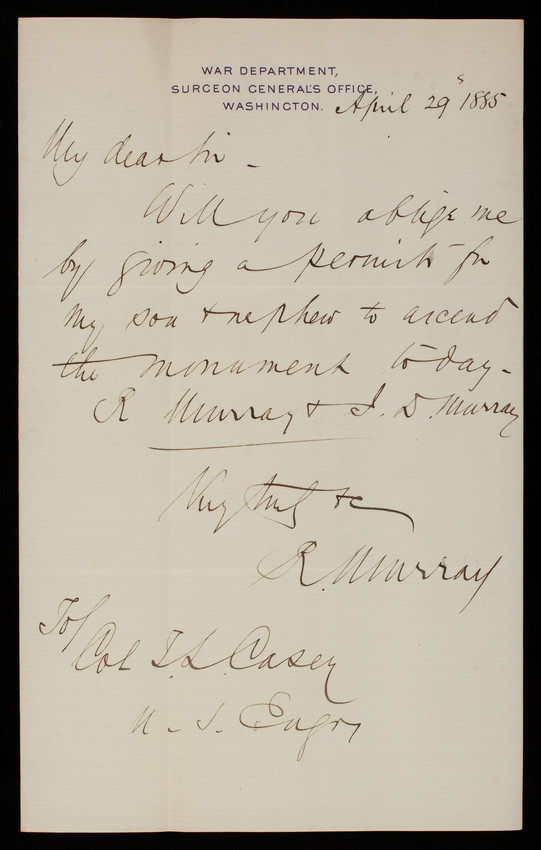 WAR DEPARTMENT,
SURGEON GENERAL'S OFFICE,
WASHINGTON. April 29 1885
My dear Sir -
Will you oblige me
by giving a permit for
my son & nephew to ascend
the monument to day -
R Murray & J. D. Murray
Very truly &c
R. Murray
To/
Col T. L. Casey
U. S. Engrs